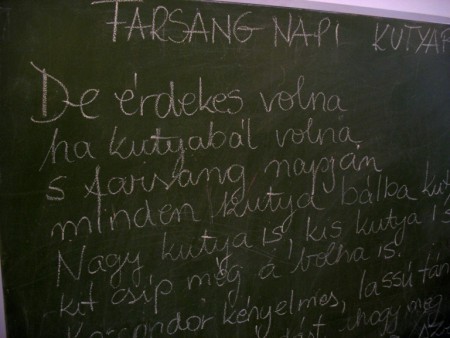 FARSANG NAPI KUTYAF
De érdekes volna
ha kutyabál volna
s farsang napján
minden kutya bálba kut
Nagy kutya is, kis kutya is
kit csíp még a bolha is.
Komondor kényelmes, lassú tán
hogy meg